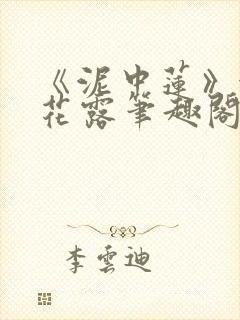 《泥中莲》
花露笔趣阁
李云迪